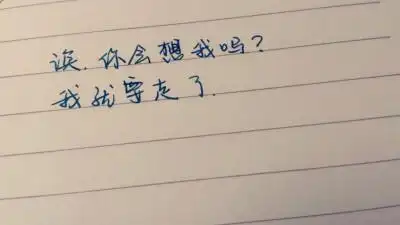 诶.你会想我吗？
我就要走了.